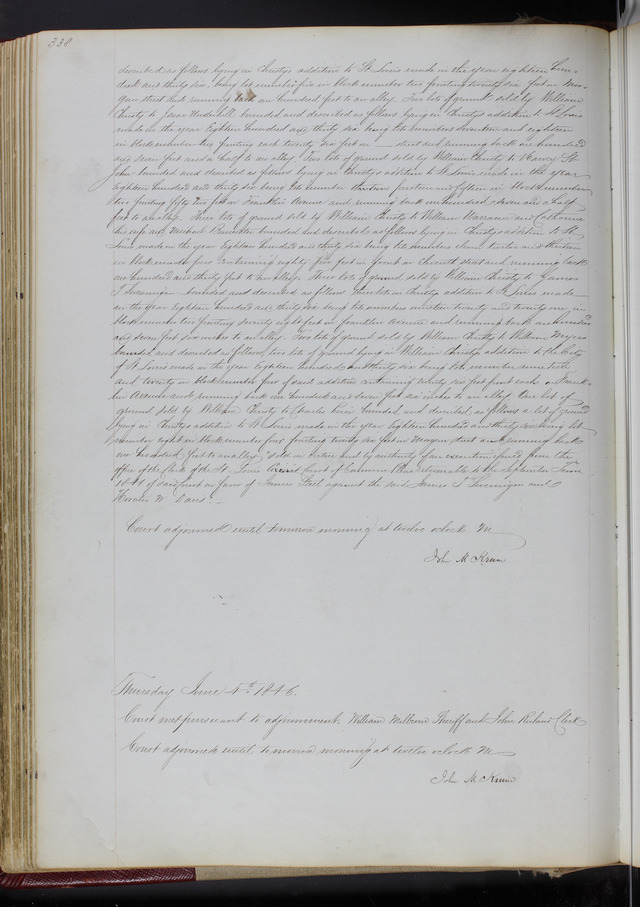 338
described as follows lying in Christys addition to St Louis made in the year eighteen hun-
dred and thirty six, being lot number six in block number two fronting twenty six feet on Mor-
gan street and running back one hundred feet to an alley. Two lots of ground sold by William
Christy to Isaac bounded and described as follows lying in Christys addition to St Louis
made in the year eighteen hundred and thirty six being lots numbers seventeen and eighteen
in block number two fronting each twenty two feet on street and running back one hundred
and seven feet and a half to an alley. Two lots of ground sold by William Christy to Harvey St
John bounded and described as follows lying in Christys addition to St Louis made in the year
eighteen hundred and thirty six being lots number thirteen fourteen and fifteen in block number
two fronting fifty two feet on Franklin Avenue and running back one hundred seven and a half
feet to an alley. Three lots of ground sold by William Christy to William and Catharine
his wife and Michael bounded and described as follows lying in Christys addition to St
Louis made in the year eighteen hundred and thirty six being lots number eleven twelve and thirteen
in block number four containing eighty five feet in front on street and running back
one hundred and thirty feet to an alley. Three lots of ground sold by William Christy to James
T bounded and described as follows three lots in Christys addition to St Louis made
in the year eighteen hundred and thirty six being lots number nineteen twenty and twenty one in
block number two fronting seventy eight feet on Franklin Avenue and running back one hundred
and seven feet six inches to an alley. Two lots of ground sold by William Christy to William Meyer
bounded and described as follows, two lots of ground lying in William Christys addition to the City
of St Louis made in the year eighteen hundred and thirty six being lots number nineteen
and twenty in block number four of said addition containing twenty six feet front each on Frank-
lin Avenue and running back one hundred and seven feet six inches to an alley. One lot of
ground sold by William Christy to Charles bounded and described as follows a lot of ground
lying in Christys addition to St Louis made in the year eighteen hundred and thirty six being lot
number eight in block number four fronting twenty six feet on Morgan street and running back
one hundred feet to an alley, sold in virtue and by authority of an execution issued from the
office of the clerk of the St Louis Court of Common Pleas returnable to the September Term
of said court in favor of James against the said James T and
Horatio N Davis.
Court adjourned until tomorrow morning at twelve oclock M
John M Krum
Thursday June 4th 1846.
Court met pursuant to adjournment. William Milburn Sheriff and John Ruland Clerk
Court adjourned until tomorrow morning at twelve oclock M
John M Krum